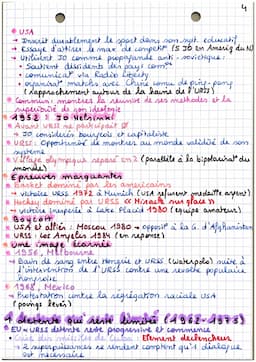 4
• USA
→ Inscrit durablement le sport dans son syst. éducatif
→ Essaye d'attirer le max de compét° (5 JO en Amériq du N)
→ Utilisent JO comme propagande anti-soviétique :
• Soutient dissidents des pays comm
• communicat° via Radio Liberty
• organisat° matchs avec Chine comu de ping-pong
(rapprochement autour de la haine de l'URSS)
• Commun : montrer la réussite de ses méthodes et la
supériorité de son idéologie
1952 : JO Helsinki
• Avant URSS ne participait Ø
→ JO considérés bourgeois et capitaliste
• URSS : Opportunité de montrer au monde validité de son
système
• Village olympique séparé en 2 (parallèle à la bipolarisat° du
monde)
Epreuves marquantes
• Basket dominé par les américains
→ victoire URSS 1972 à Munich (USA refusent médaille argent)
• Hockey dominé par URSS « Miracle sur glace »
→ victoire inespérée à Lake Placid 1980 (équipe amateur)
Boycott
• USA et alliés : Moscou 1980 → opposit° à la G. d'Afghanistan
• URSS : Los Angeles 1984 (en réponse)
Une image écornée
• 1956, Melbourne
→ Bain de sang entre Hongrie et URSS (waterpolo) suite à
l'intervention de l'URSS contre une révolte populaire
hongroise
• 1968, Mexico
→ Protestation contre la ségrégation raciale USA
(poings levés)
1 détente qui reste limité (1962-1975)
• EU-URSS détente reste progressive et commence
• Crise des missiles de Cuba : Elément déclencheur
→ 2 superpuissances se rendent compte qu'1 dialogue
est nécessaire